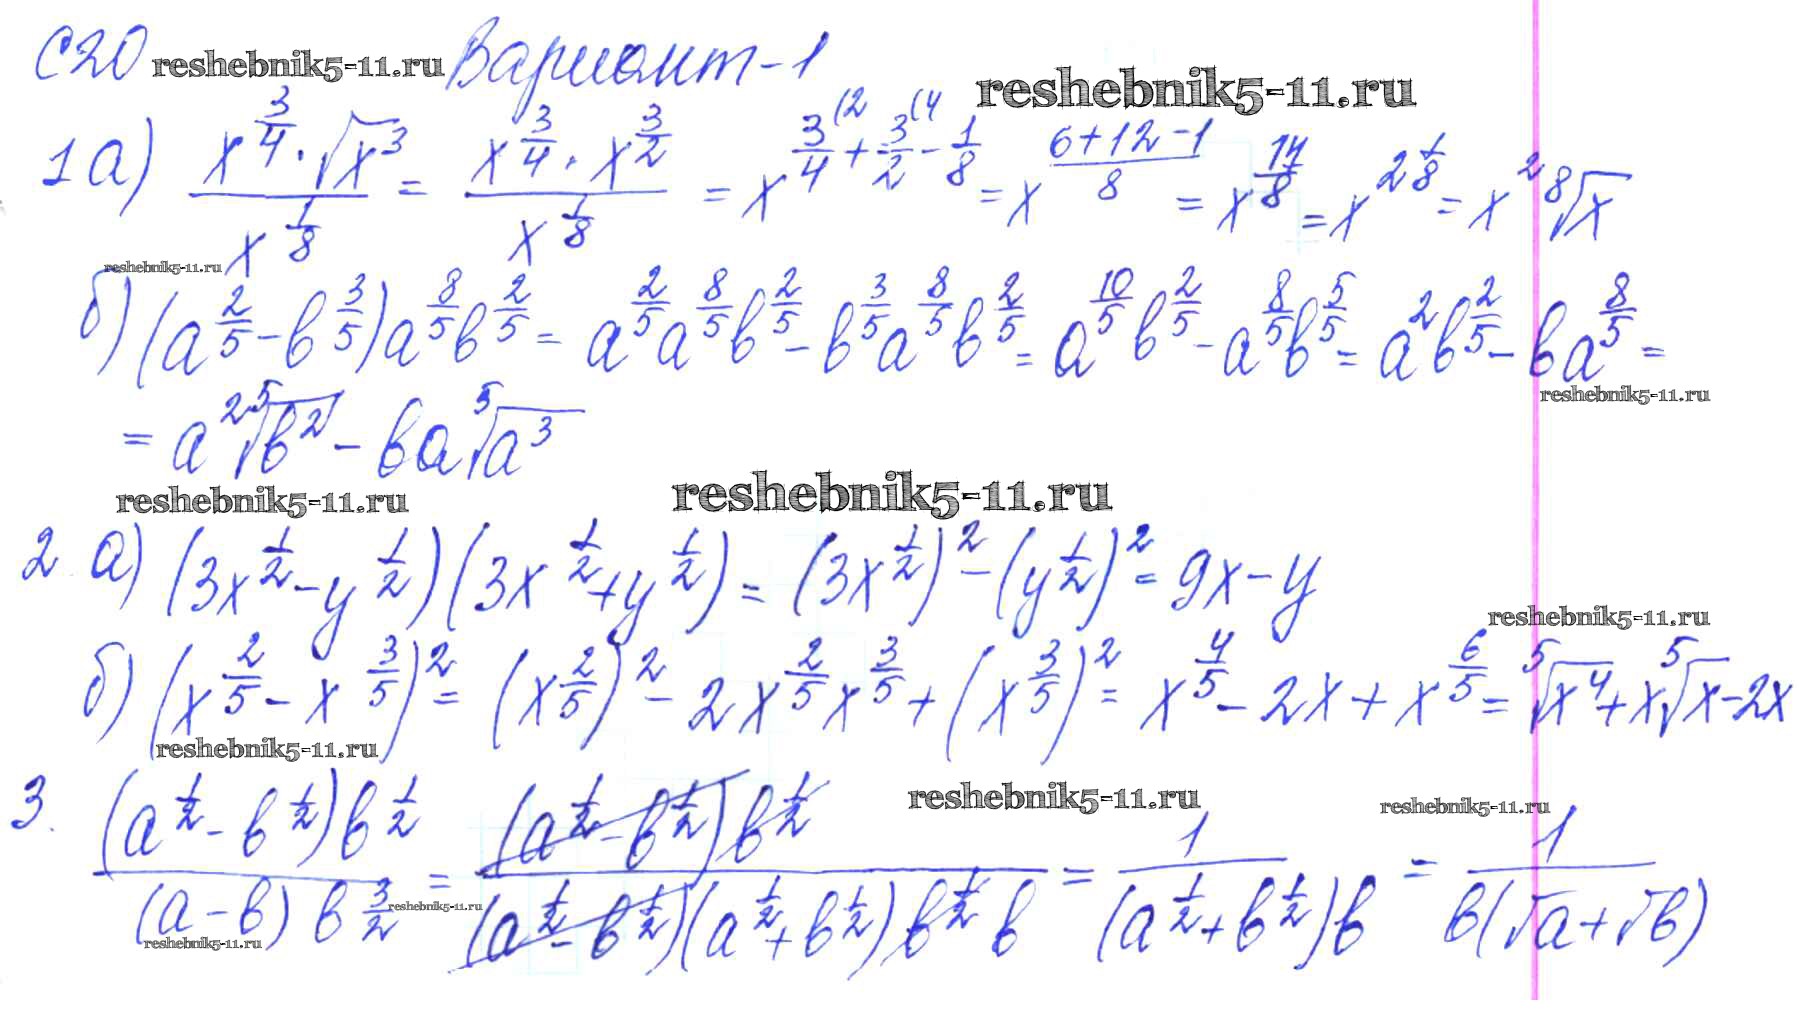 С20 reshebnik5-11.ru Вариант-1 reshebnik5-11.ru
1 а) (x^(3/4) · √(x³)) / x^(1/8) = (x^(3/4) · x^(3/2)) / x^(1/8) = x^(3/4 (2 + 3/2 (4 - 1/8) = x^((6+12-1)/8) = x^(17/8) = x^(2 1/8) = x² ⁸√x
reshebnik5-11.ru
б) (a^(2/5) - b^(3/5)) a^(8/5) b^(2/5) = a^(2/5) a^(8/5) b^(2/5) - b^(3/5) a^(8/5) b^(2/5) = a^(10/5) b^(2/5) - a^(8/5) b^(5/5) = a² b^(2/5) - b a^(8/5) =
reshebnik5-11.ru
= a² ⁵√(b²) - b a ⁵√(a³)
reshebnik5-11.ru reshebnik5-11.ru
2. а) (3x^(1/2) - y^(1/2)) (3x^(1/2) + y^(1/2)) = (3x^(1/2))² - (y^(1/2))² = 9x - y
reshebnik5-11.ru
б) (x^(2/5) - x^(3/5))² = (x^(2/5))² - 2x^(2/5) x^(3/5) + (x^(3/5))² = x^(4/5) - 2x + x^(6/5) = ⁵√(x⁴) + x ⁵√x - 2x
reshebnik5-11.ru
reshebnik5-11.ru reshebnik5-11.ru
3. ((a^(1/2) - b^(1/2)) b^(1/2)) / ((a - b) b^(3/2)) = ((a^(1/2) - b^(1/2)) b^(1/2)) / ((a^(1/2) - b^(1/2)) (a^(1/2) + b^(1/2)) b^(1/2) b) = 1 / ((a^(1/2) + b^(1/2)) b) = 1 / (b(√a + √b))
reshebnik5-11.ru
reshebnik5-11.ru